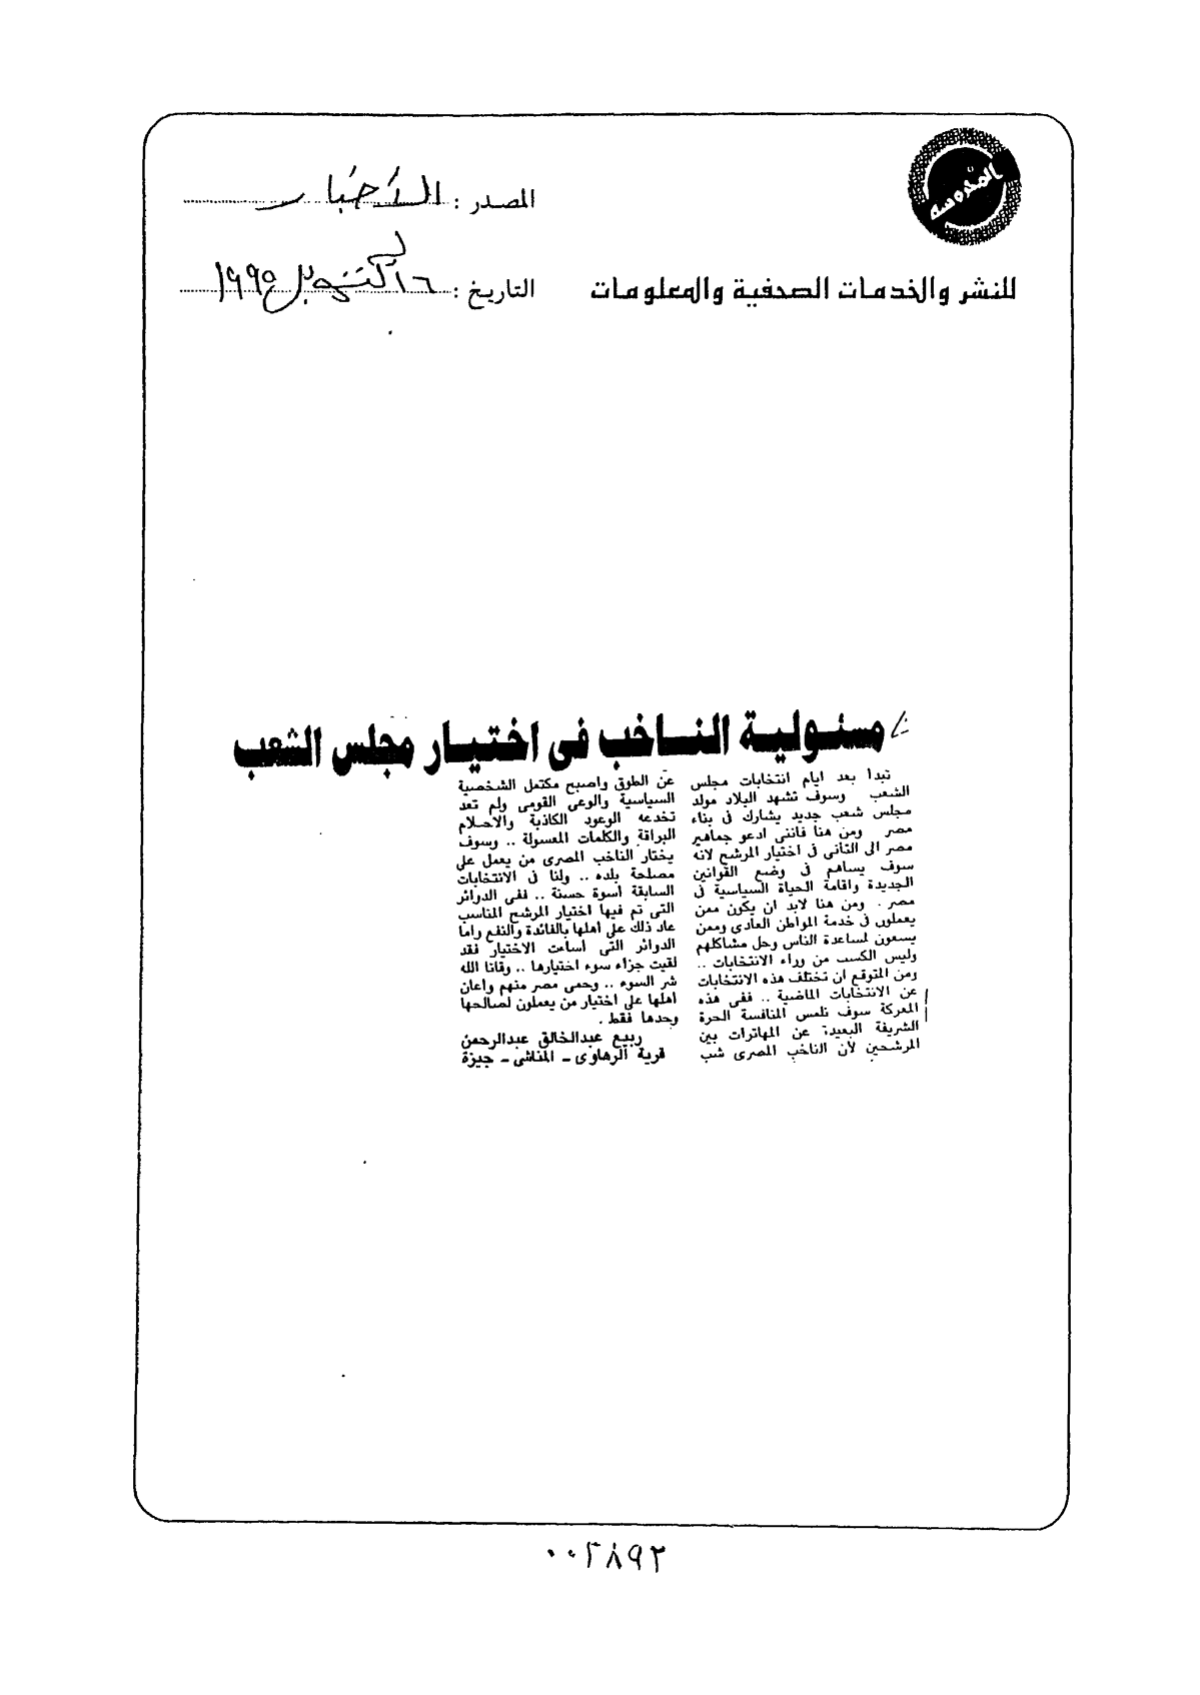 المحروسة
المصدر : الأخبار
للنشر والخدمات الصحفية والمعلومات
التاريخ : ٦ أكتوبر ١٩٩٥
مسئولية الناخب فى اختيار مجلس الشعب
تبدأ بعد ايام انتخابات مجلس
الشعب وسوف تشهد البلاد مولد
مجلس شعب جديد يشارك فى بناء
مصر ومن هنا فاننى ادعو جماهير
مصر الى التأنى فى اختيار المرشح لانه
سوف يساهم فى وضع القوانين
الجديدة واقامة الحياة السياسية فى
مصر . ومن هنا لابد ان يكون ممن
يعملون فى خدمة المواطن العادى وممن
يسعون لمساعدة الناس وحل مشاكلهم
وليس الكسب من وراء الانتخابات ..
ومن المتوقع ان تختلف هذه الانتخابات
عن الانتخابات الماضية .. ففى هذه
المعركة سوف نلمس المنافسة الحرة
الشريفة البعيدة عن المهاترات بين
المرشحين لأن الناخب المصرى شب
عن الطوق واصبح مكتمل الشخصية
السياسية والوعى القومى ولم تعد
تخدعه الوعود الكاذبة والاحلام
البراقة والكلمات المعسولة .. وسوف
يختار الناخب المصرى من يعمل على
مصلحة بلده .. ولنا فى الانتخابات
السابقة اسوة حسنة .. ففى الدوائر
التى تم فيها اختيار المرشح المناسب
عاد ذلك على اهلها بالفائدة والنفع واما
الدوائر التى أساءت الاختيار فقد
لقيت جزاء سوء اختيارها .. وقانا الله
شر السوء .. وحمى مصر منهم واعان
اهلها على اختيار من يعملون لصالحها
وحدها فقط .
ربيع عبدالخالق عبدالرحمن
قرية الرهاوى - المناشى - جيزة
٠٠٢٨٩٢